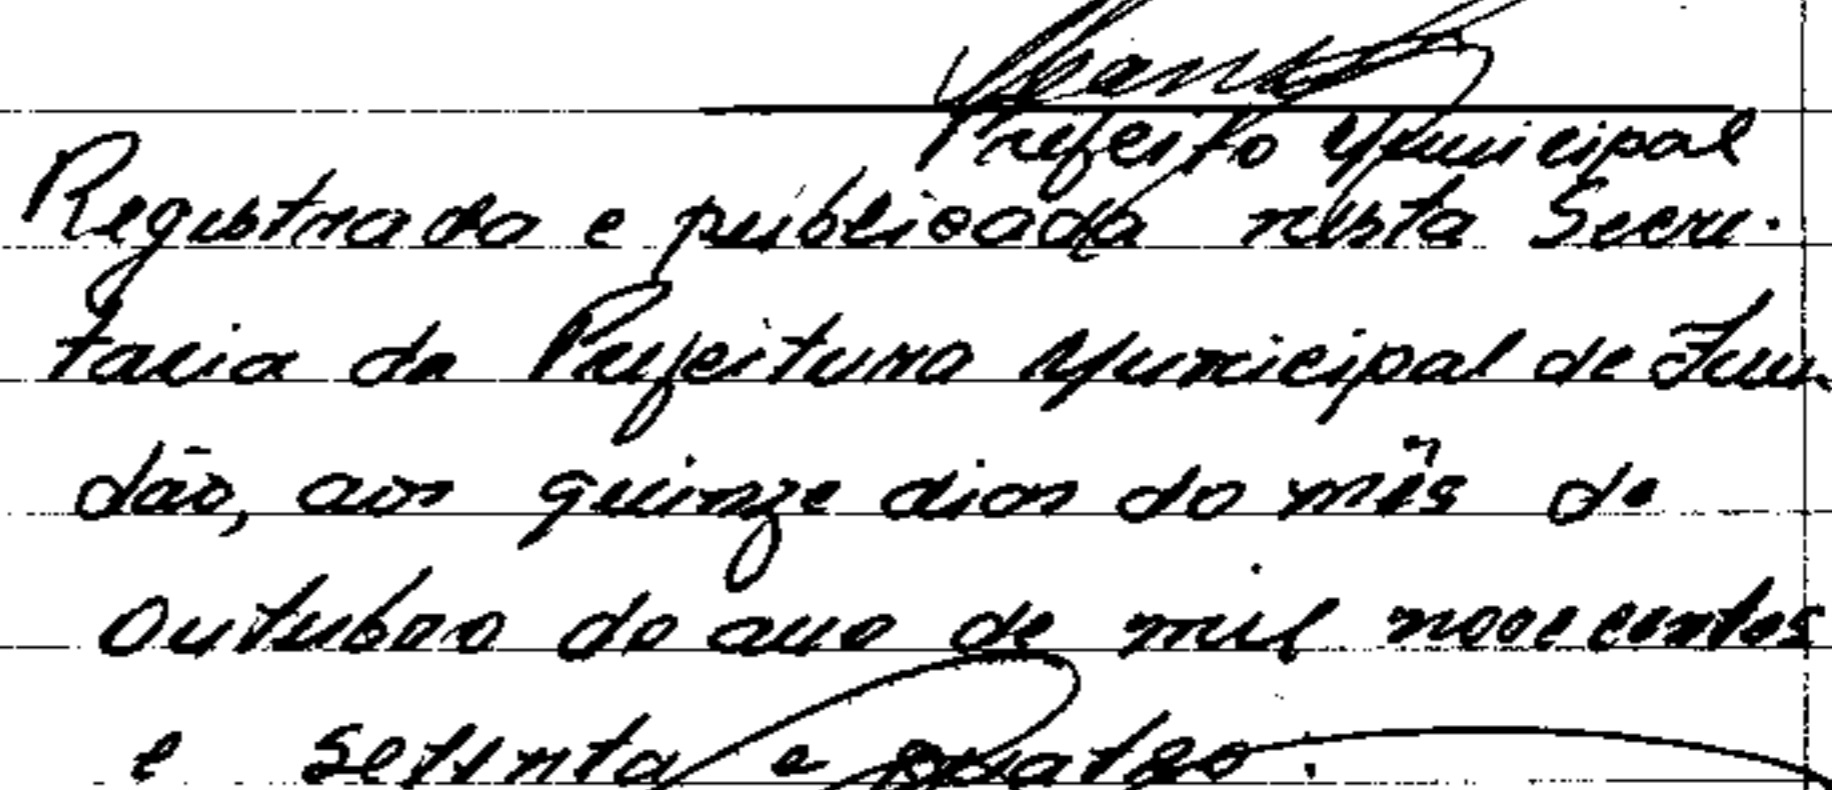 Prefeito Municipal
Registrada e publicada nesta Secre-
taria da Prefeitura Municipal de Fun-
dão, aos quinze dias do mês de
Outubro do ano de mil novecentos
e setenta e quatro.